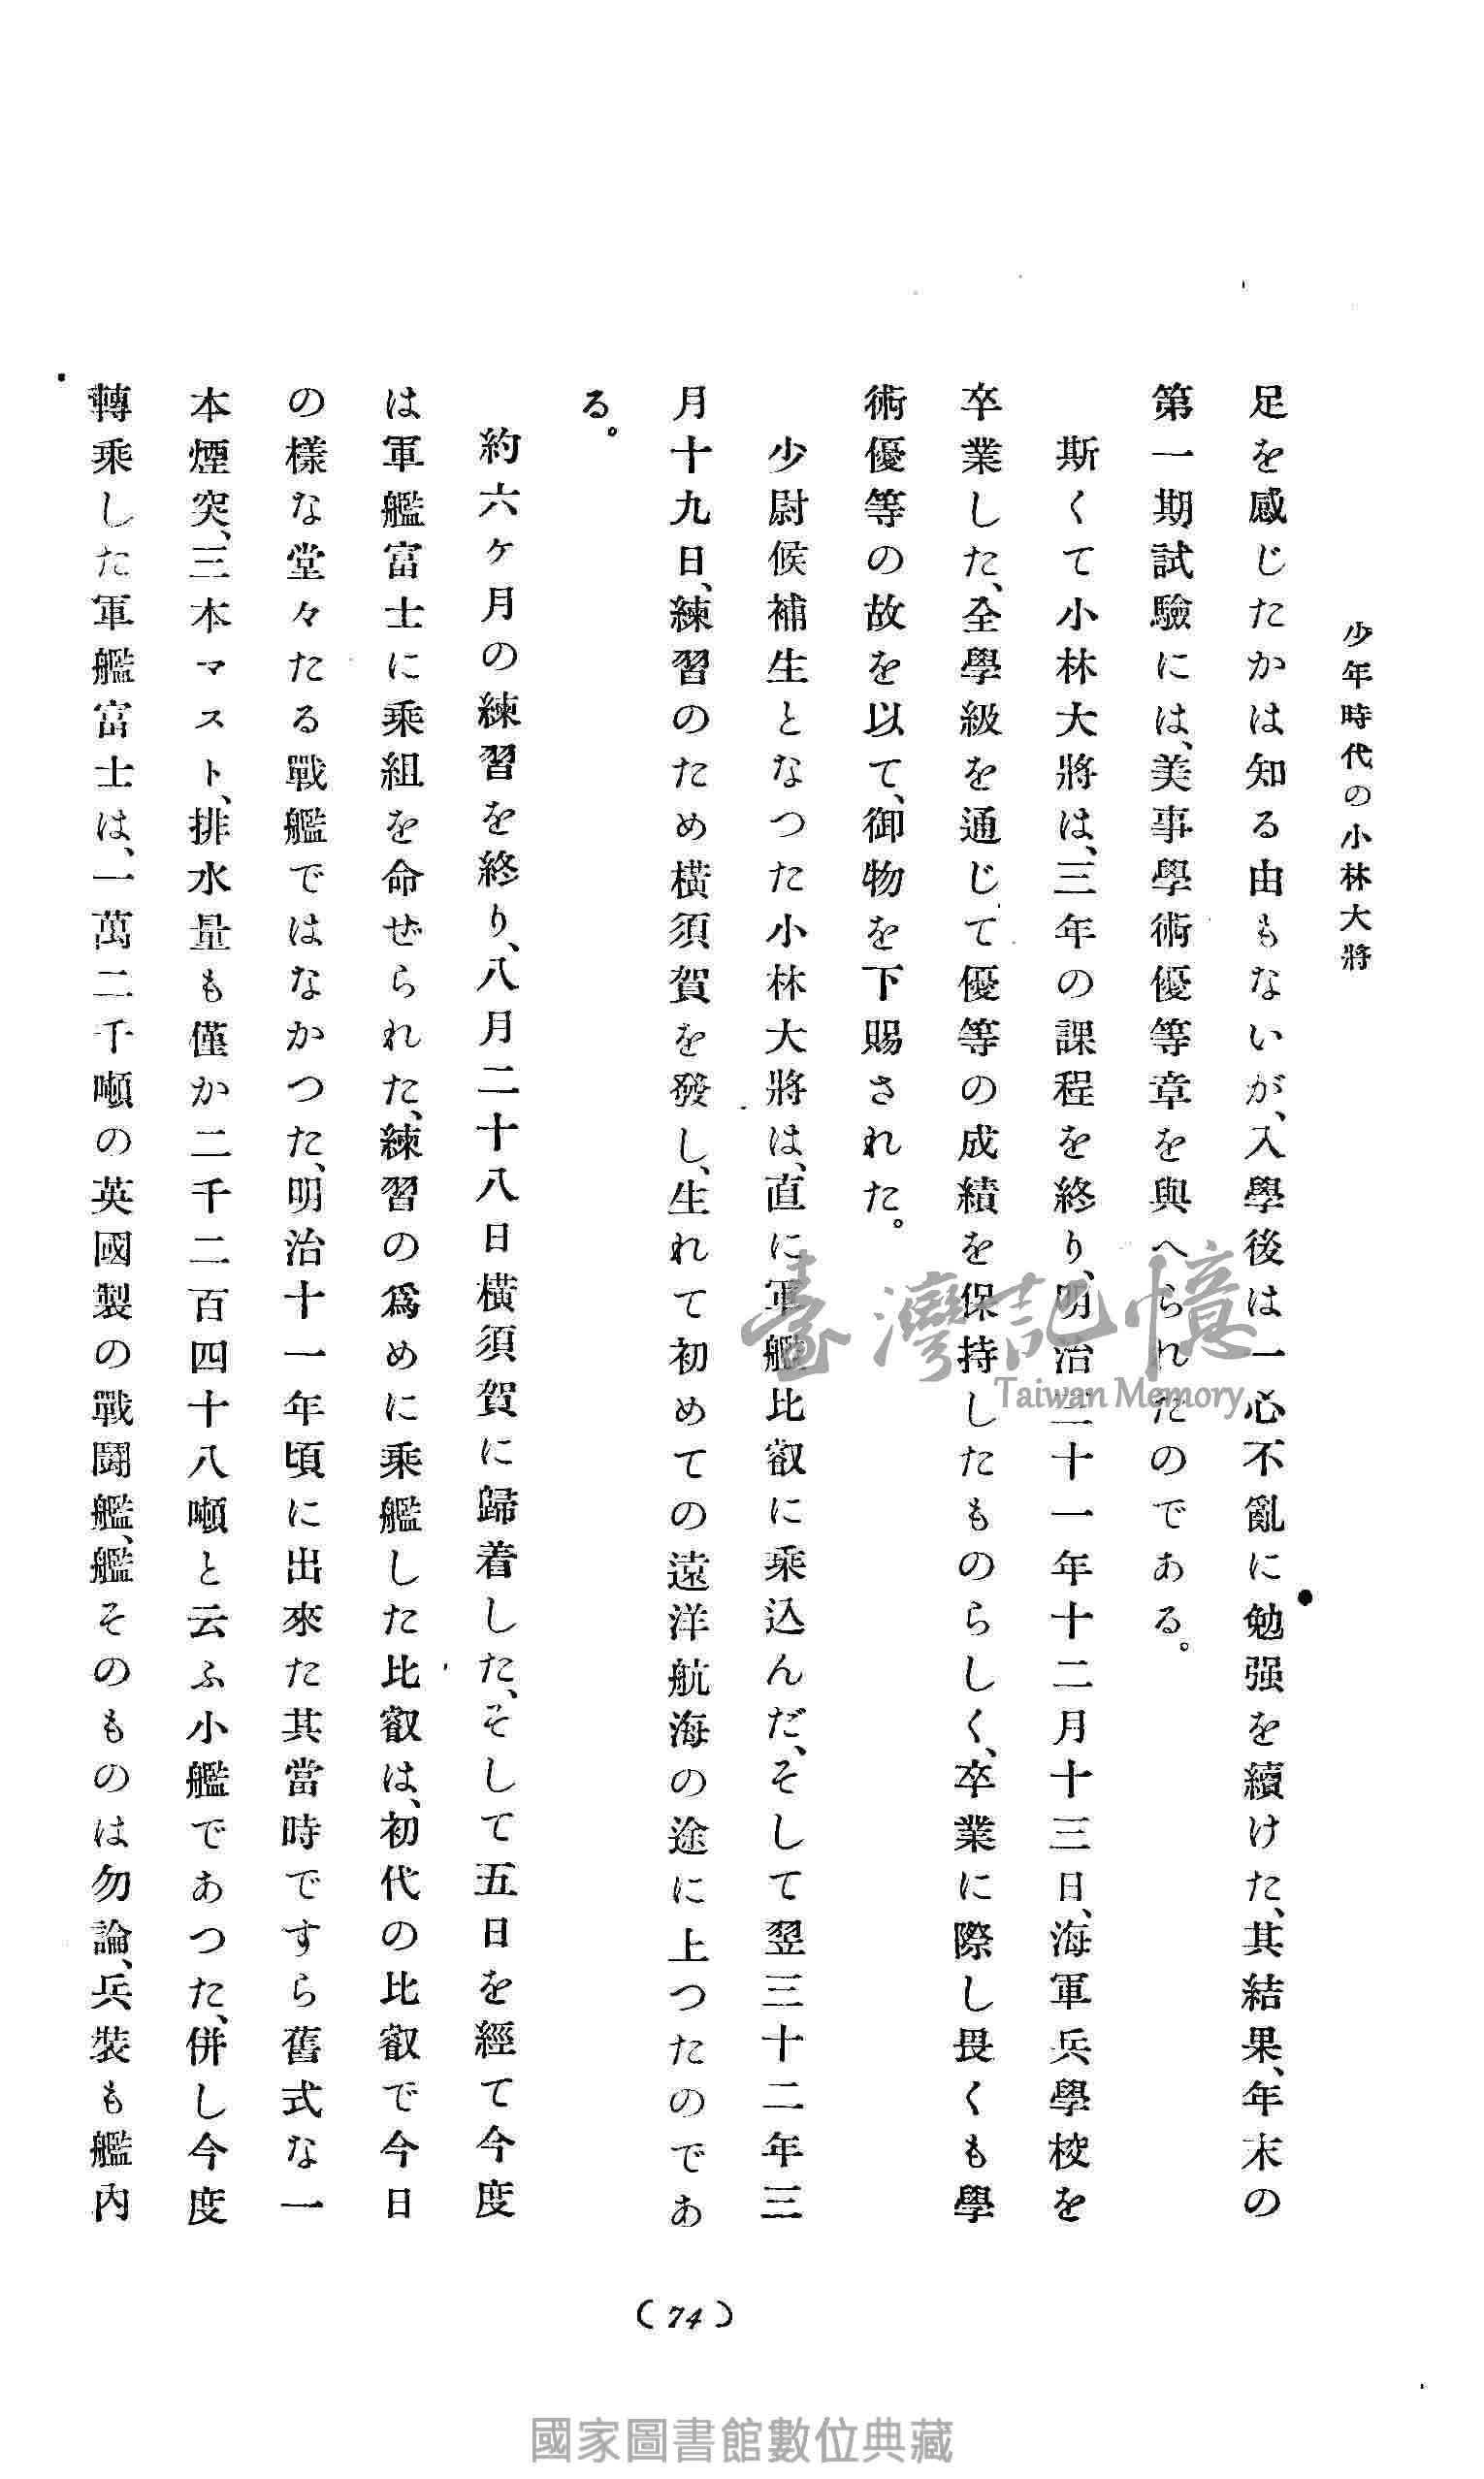 少年時代の小林大將
足を感じたかは知る由もないが、入學後は一心不亂に勉强を續けた、其結果、年末の
第一期試驗には、美事學術優等章を與へられたのである。
斯くて小林大將は、三年の課程を終り、明治三十一年十二月十三日、海軍兵學校を
卒業した、全學級を通じて優等の成績を保持したものらしく、卒業に際し畏くも學
術優等の故を以て、御物を下賜された。
少尉候補生となつた小林大將は、直に軍艦比叡に乘込んだ、そして翌三十二年三
月十九日、練習のため橫須賀を發し、生れて初めての遠洋航海の途に上つたのであ
る。
約六ヶ月の練習を終り、八月二十八日橫須賀に歸着した、そして五日を經て今度
は軍艦富士に乘組を命ぜられた、練習の爲めに乘艦した比叡は、初代の比叡で今日
の樣な堂々たる戰艦ではなかつた、明治十一年頃に出來た其當時ですら舊式な一
本煙突、三本マスト、排水量も僅か二千二百四十八噸と云ふ小艦であつた、併し今度
轉乘した軍艦富士は、一萬二千噸の英國製の戰鬪艦、艦そのものは勿論、兵裝も艦內
(74)
臺灣記憶
Taiwan Memory
國家圖書館數位典藏